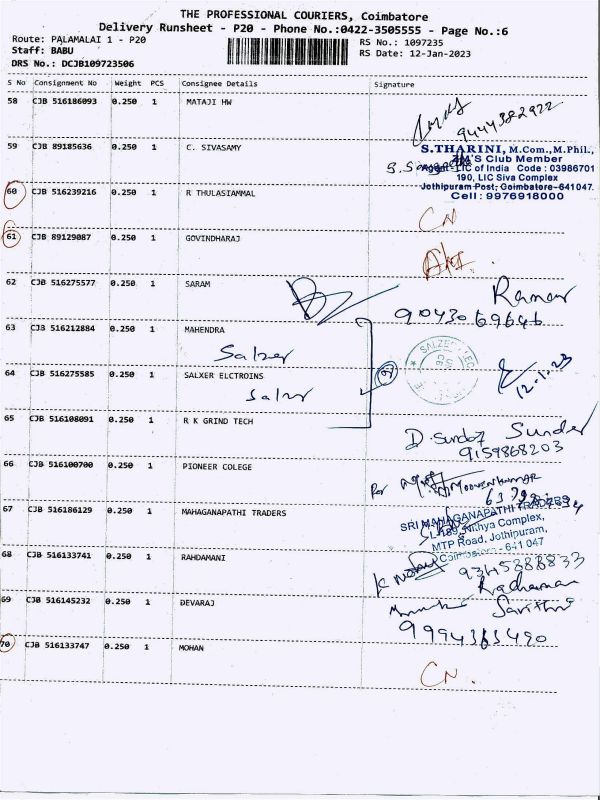 THE PROFESSIONAL COURIERS, Coimbatore
Delivery Runsheet - P20 - Phone No.:0422-3505555 - Page No.:6
Route: PALAMALAI 1 - P20
RS No.: 1097235
Staff: BABU
RS Date: 12-Jan-2023
DRS No.: DCJB109723506
S No Consignment No Weight PCS Consignee Details Signature
58 CJB 516186093 0.250 1 MATAJI HW
9444382922
59 CJB 89185636 0.250 1 C. SIVASAMY
S.THARINI, M.Com., M.Phil.,
ZM'S Club Member
Agent-LIC of India Code : 03986701
190, LIC Siva Complex
Jothipuram Post, Coimbatore-641047
Cell: 9976918000
60 CJB 516239216 0.250 1 R THULASIAMMAL
CN
61 CJB 89129087 0.250 1 GOVINDHARAJ
62 CJB 516275577 0.250 1 SARAM
Raman
9043069646
63 CJB 516212884 0.250 1 MAHENDRA
Salzer
64 CJB 516275585 0.250 1 SALXER ELCTROINS
Salzer
12.1.23
65 CJB 516108091 0.250 1 R K GRIND TECH
Sunder
9159868203
66 CJB 516100700 0.250 1 PIONEER COLEGE
67 CJB 516186129 0.250 1 MAHAGANAPATHI TRADERS
SRI MAHAGANAPATHI TRADERS
L-189, Nithya Complex,
MTP Road, Jothipuram,
Coimbatore - 641 047
68 CJB 516133741 0.250 1 RAHDAMANI
9345388833
69 CJB 516145232 0.250 1 DEVARAJ
Savithri
9994363490
70 CJB 516133747 0.250 1 MOHAN
CN.